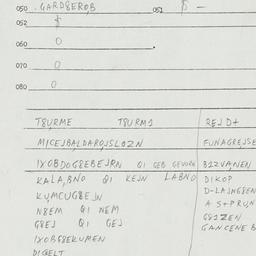 050 . GARD8ERO,B 051 $ —
052 $
060 O
070 O
080 O
T8U,RME T8URM1 REJ D+
MICEJBALDARO,JSLOZN FUNAGREJSE
IXOBDOG8EBEJRN QI GEB GEVORN B1ZVA,NEN
KALA,BNO QI KEJN LABNO DIKOP
KU,MCUG8EJN D-LAJNG8EN
N8EM QI NEM A S+PRU,N
G8EJ QI GEJ G81ZEN
IXOBG8EKUMEN GANCENE B
DIGELT